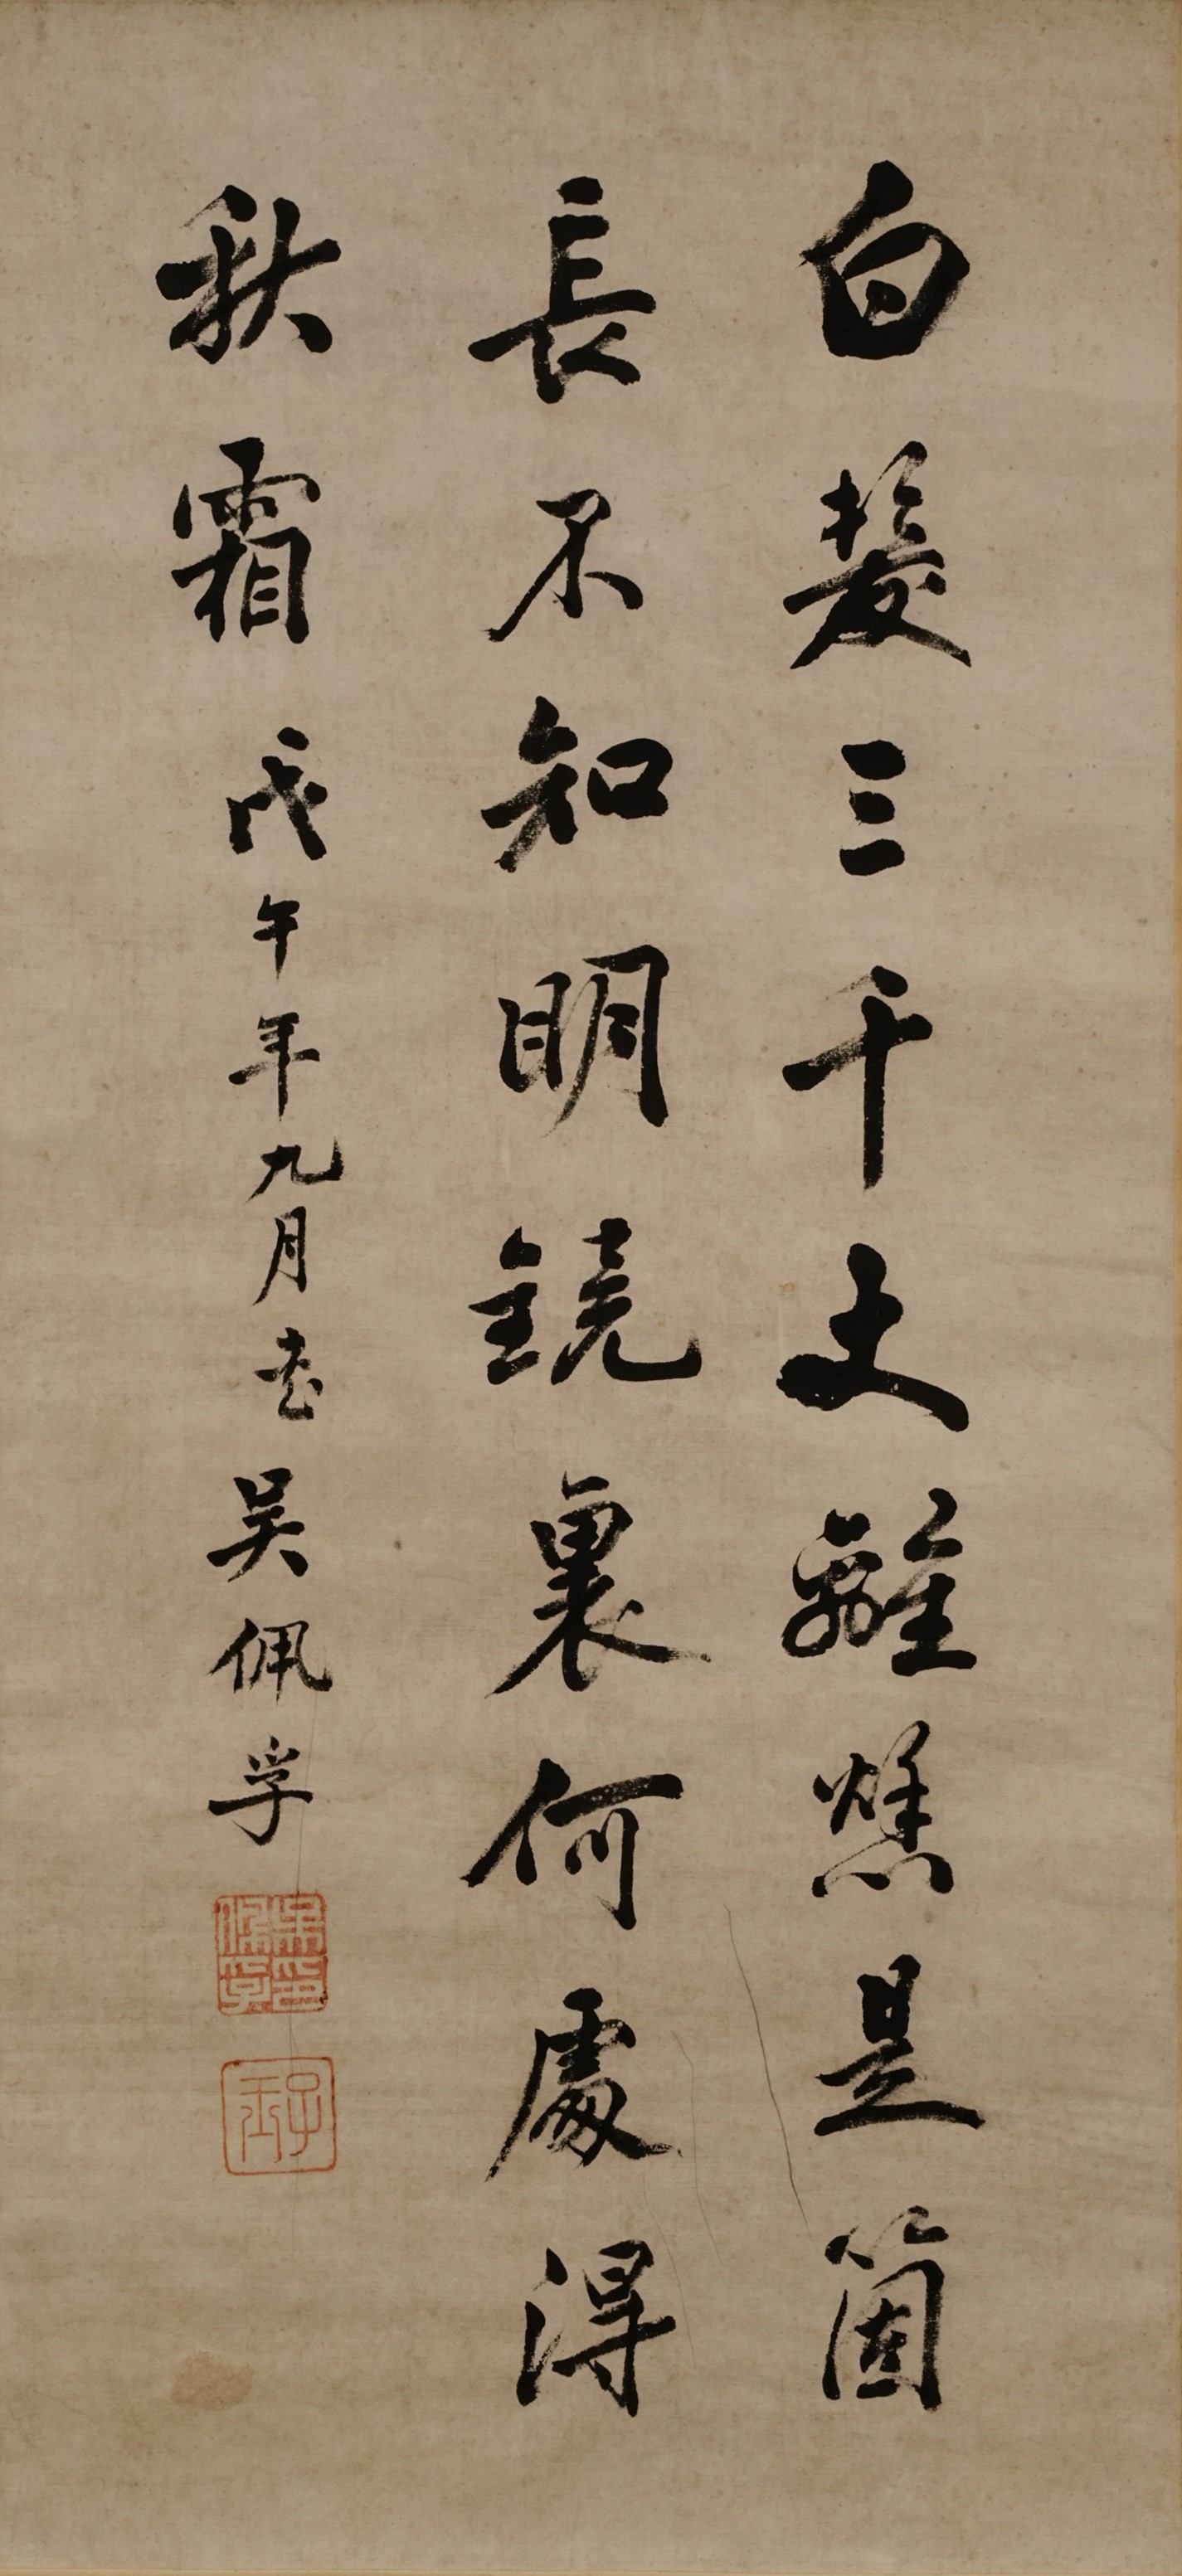 白髮三千丈離愁是箇
長不知明鏡裏何處得
秋霜 戊午年九月書 吳佩孚
吳印佩孚
子玉